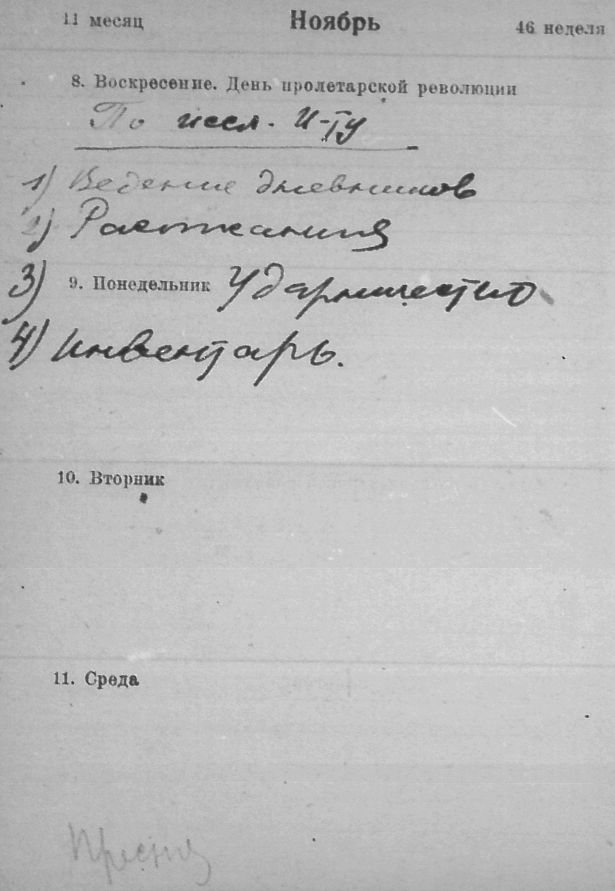 11 месяц Ноябрь 46 неделя
8. Воскресение. День пролетарской революции
По иссл. И-ту
1) Ведение дневников
2)
3) 9. Понедельник Ударничество
4) Инвентарь.
10. Вторник
11. Среда